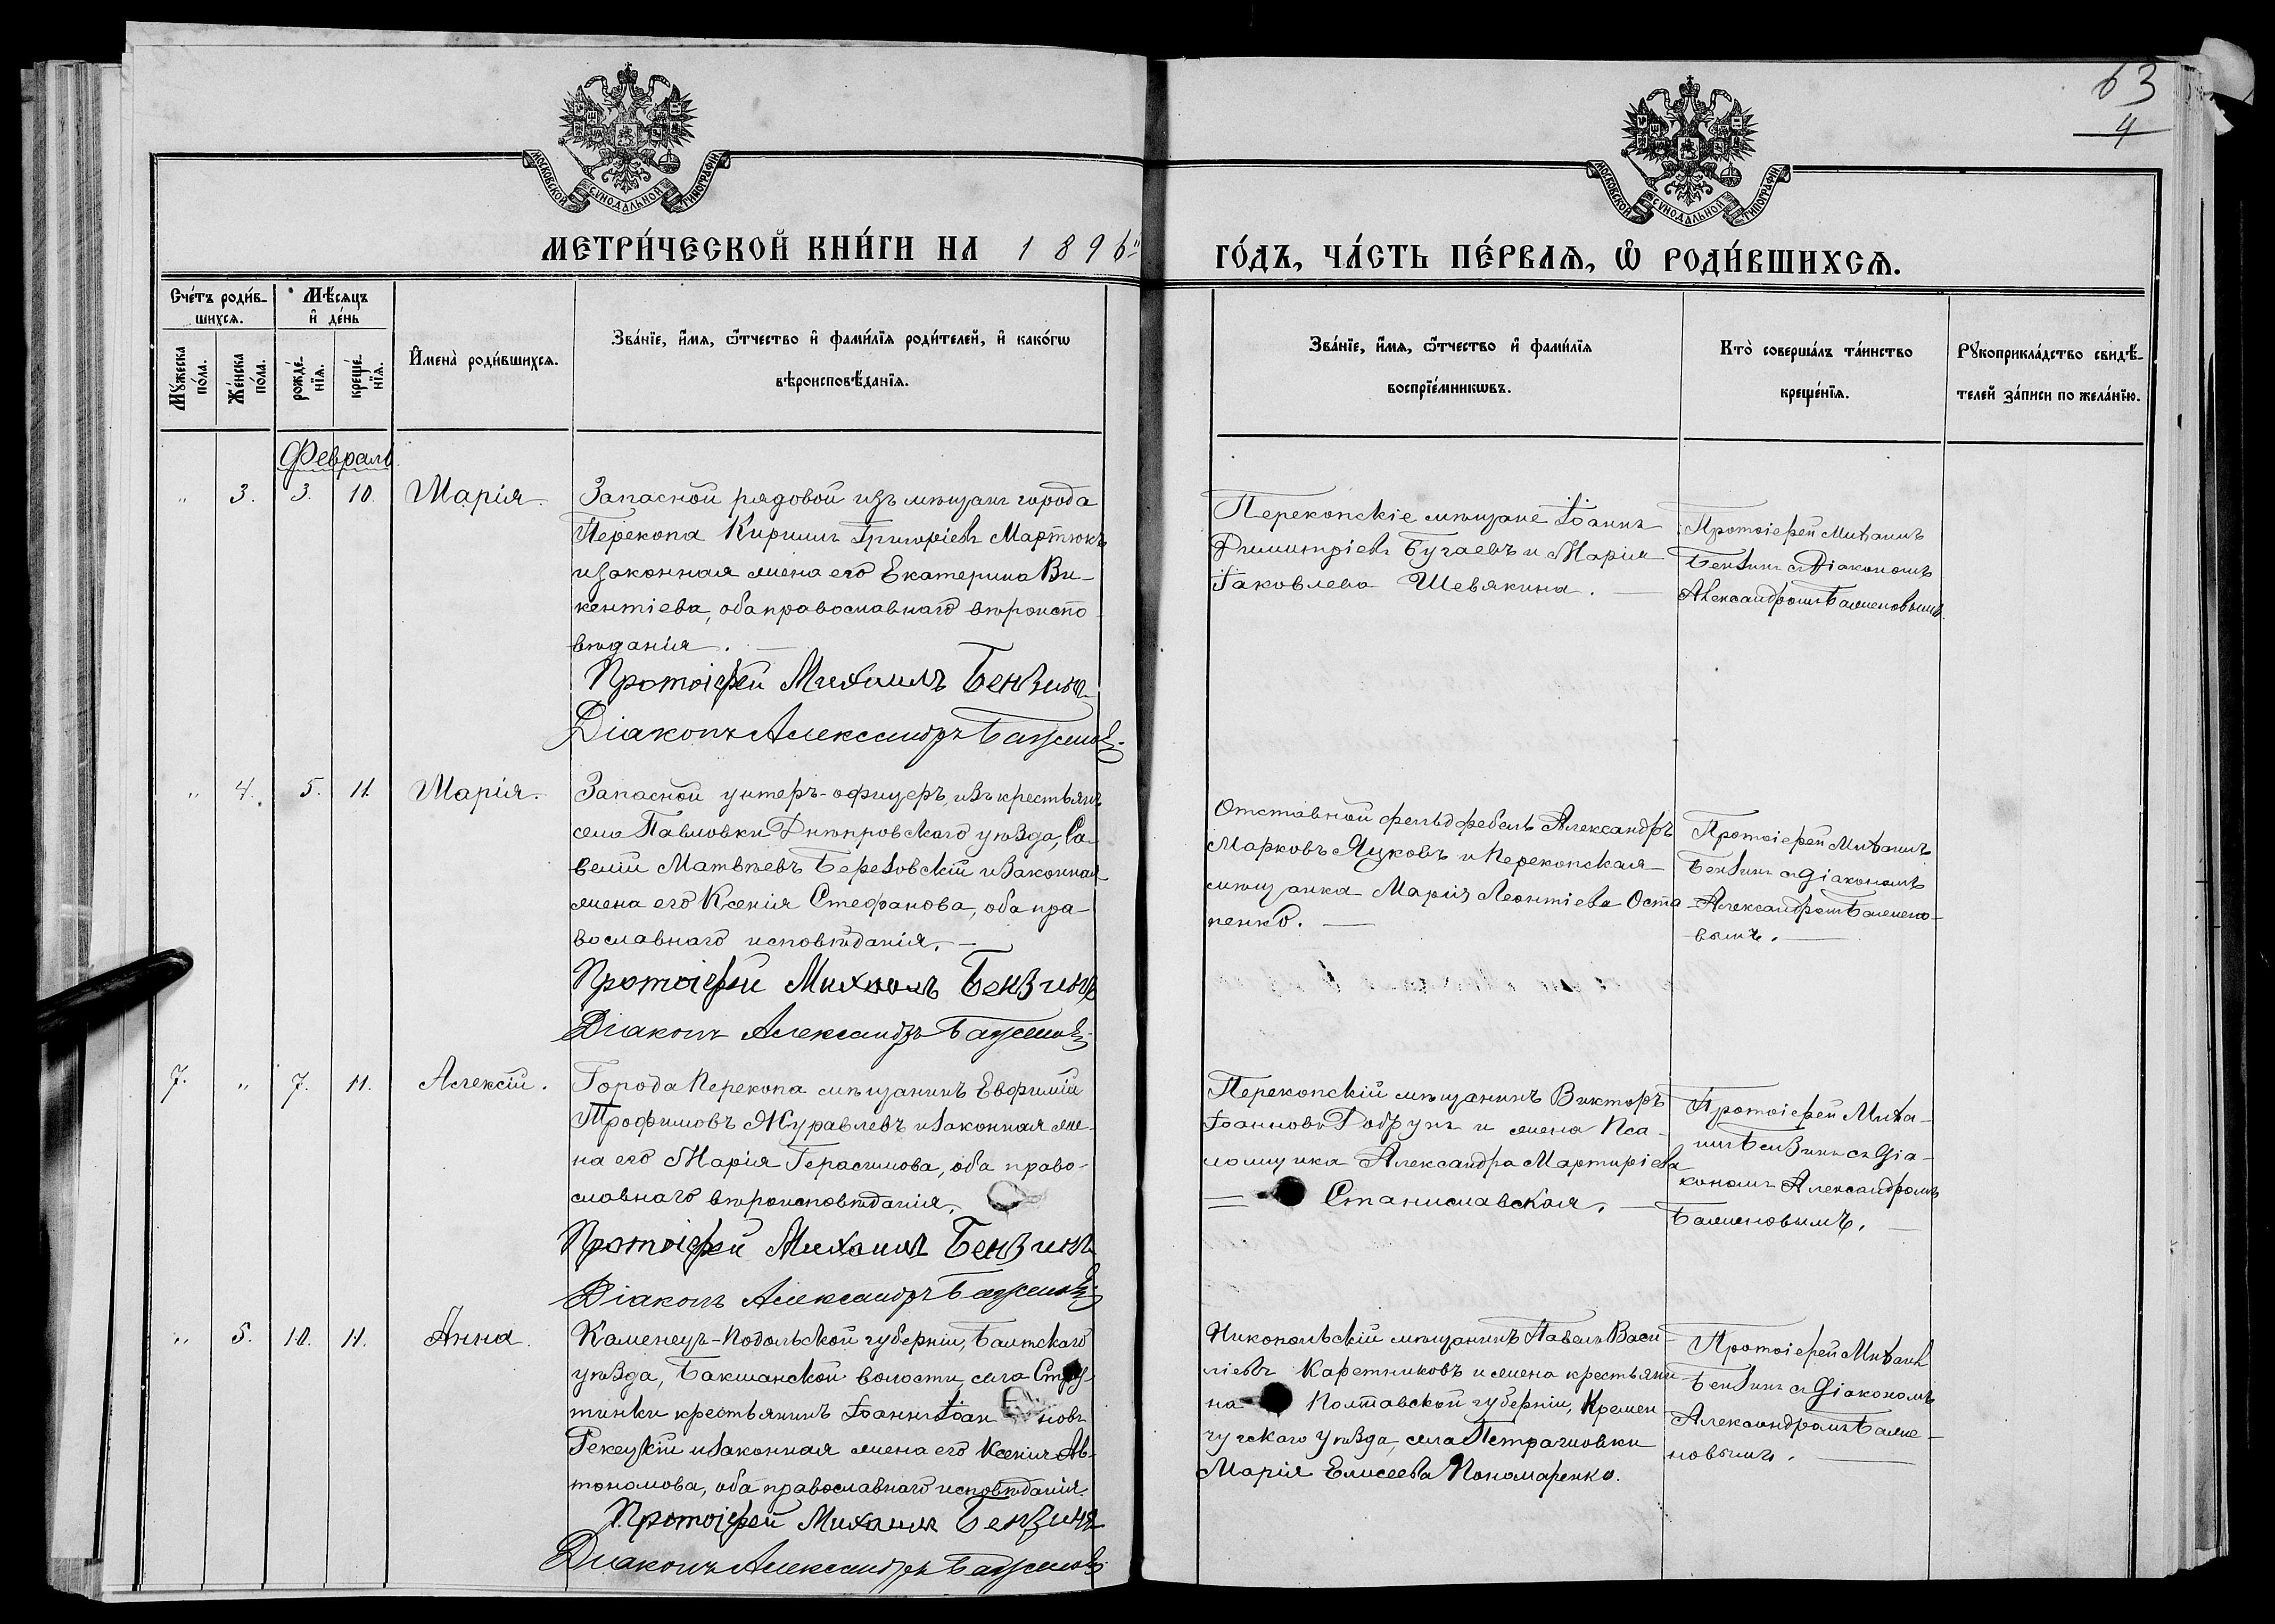 63
4
МОСКОВСКОЙ СѴНОДАЛЬНОЙ ТИПОГРАФІИ
МОСКОВСКОЙ СѴНОДАЛЬНОЙ ТИПОГРАФІИ
МЕТРИ́ЧЕСКОЙ КНИ́ГИ НА 1896
ГО́ДЪ, ЧА́СТЬ ПЕ́РВАѦ, Ѡ҆ РОДИ́ВШИХСѦ.
Сче́тъ роди́в-
шихсѧ.
Мѣ́сѧцъ
и҆ де́нь
Мꙋ́жеска
по́ла.
Же́нска
по́ла.
рожде́-
нїѧ.
креще́-
нїѧ.
И҆мена̀ роди́вшихсѧ.
Зва́нїе, и҆́мѧ, ѻ҆́тчество и҆ фами́лїѧ роди́телей, и҆ како́гѡ
вѣроисповѣ́данїѧ.
Зва́нїе, и҆́мѧ, ѻ҆́тчество и҆ фами́лїѧ
воспрїе́мникѡвъ.
Кто̀ соверша́лъ та́инство
креще́нїѧ.
Рꙋкоприкла́дство свидѣ́-
телей за́писи по жела́нїю.
Февраль
" 3. 3. 10. Марія.
Запасной рядовой изъ мѣщанъ города
Перекопа Кириллъ Григоріевъ Мартюкъ
и законная жена его Екатерина Ви-
кентіева, оба православнаго вѣроиспо-
вѣданія.
Протоіерей Михаилъ Бензинъ
Діаконъ Александръ Баженовъ
Перекопскіе мѣщане Іоаннъ
Димитріевъ Бугаевъ и Марія
Іаковлева Шевякина.
Протоіерей Михаилъ
Бензинъ съ Діакономъ
Александромъ Баженовымъ.
" 4. 5. 11. Марія.
Запасной унтеръ-офицеръ, изъ крестьянъ
села Павловки Днѣпровскаго уѣзда, Са-
велій Матвѣевъ Березовскій и законная
жена его Ксенія Стефанова, оба пра-
вославнаго исповѣданія.
Протоіерей Михаилъ Бензинъ
Діаконъ Александръ Баженовъ
Отставной фельдфебель Александръ
Марковъ Яцковъ и Перекопская
мѣщанка Марія Леонтіева Оста-
пенко.
Протоіерей Михаилъ
Бензинъ съ діакономъ
Александромъ Бажено-
вымъ.
7. " 7. 11. Алексій.
Города Перекопа мѣщанинъ Евфимій
Трофимовъ Журавлевъ и законная же-
на его Марія Герасимова, оба право-
славнаго вѣроисповѣданія.
Протоіерей Михаилъ Бензинъ
Діаконъ Александръ Баженовъ
Перекопскій мѣщанинъ Викторъ
Іоанновъ Добрунъ и жена Пса-
ломщика Александра Мартиріева
Станиславская.
Протоіерей Миха-
илъ Бензинъ съ діа-
кономъ Александромъ
Баженовымъ.
" 5. 10. 11. Анна.
Каменецъ-Подольской губерніи, Балтскаго
уѣзда, Бакшанской волости, села Стру-
тинки крестьянинъ Іоаннъ Іоанновъ
Рекецкій и законная жена его Ксенія Ав-
тономова, оба православнаго исповѣданія.
Протоіерей Михаилъ Бензинъ
Діаконъ Александръ Баженовъ
Никопольскій мѣщанинъ Павелъ Васи-
ліевъ Каретниковъ и жена крестьяни-
на Полтавской губерніи, Кремен-
чугскаго уѣзда, села
Марія Елисеева Пономаренко.
Протоіерей Михаилъ
Бензинъ съ діакономъ
Александромъ Баже-
новымъ.